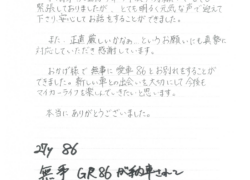 緊張しておりましたが、とても明るく元気な声で迎えて
下さり安心してお話をすることができました。
また、正直厳しいかなぁ…というお願いにも真摯に
対応していただき感謝しています。
おかげ様で無事に愛車86とお別れをすることが
できました。新しい車との出会いを大切にして今後も
マイカーライフを楽しんでいきたいと思います。
本当にありがとうございました。
86
無事 GR86 が納車されて